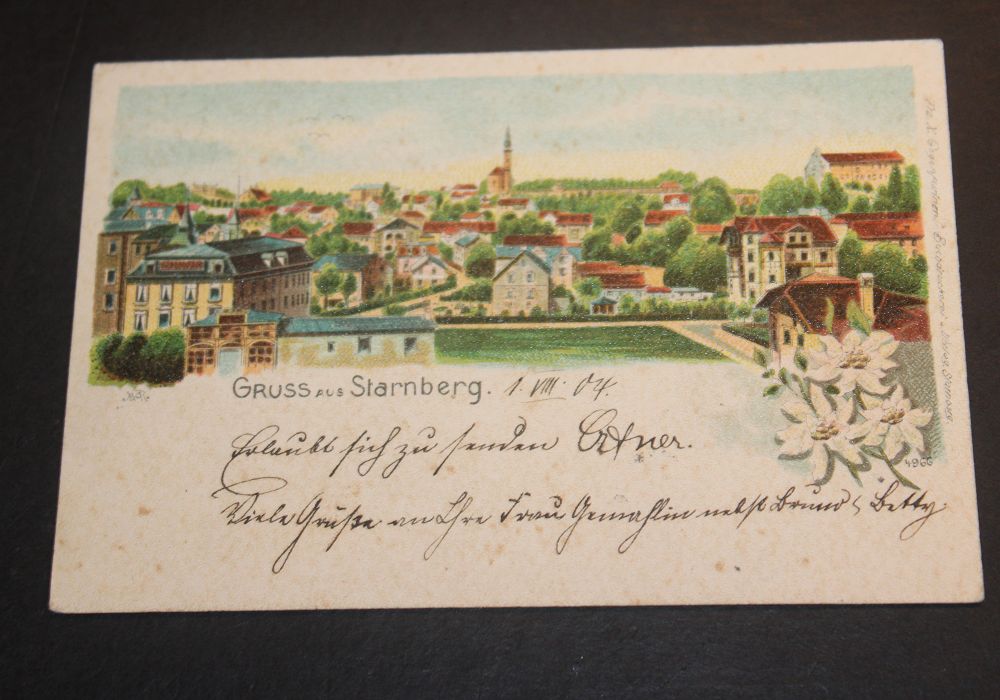 GRUSS AUS Starnberg. 1. VIII. 04.
Erlaubt sich zu senden
Viele Grüße an Ihre Frau Gemahlin nebst Bruno & Betty
4966